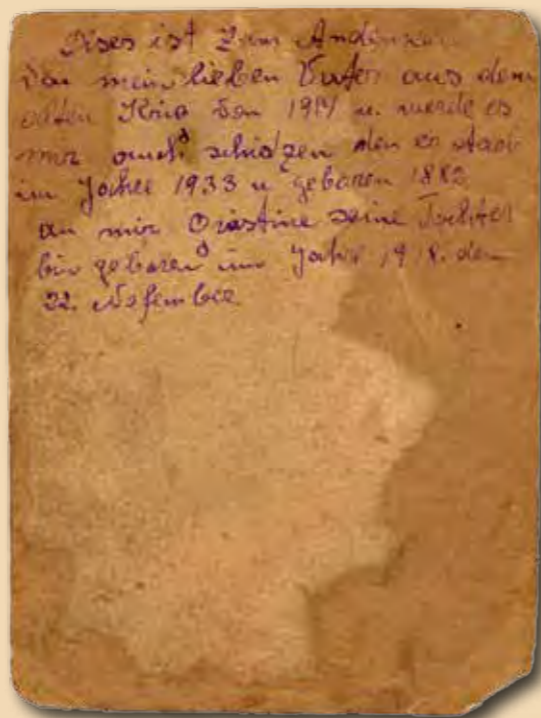 Dises ist Zum Andenken
Von mein lieben Vater aus dem
alten Krig von 1914 u. werde es
mir auch schidzen den er starb
im Jahre 1933 u geboren 1882
an mir seine Tochter
bin geboren im Jahre 1918. den
22. Nofember